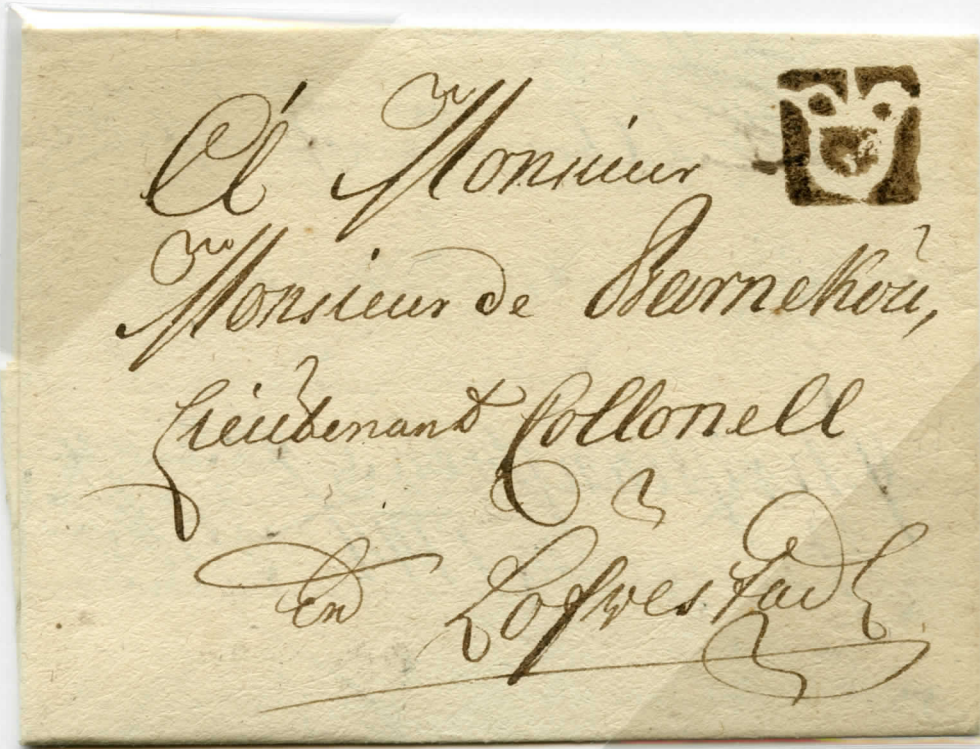 A Monsieur
Monsieur de Barnekou,
Lieutenant Collonell
en Lofvestad